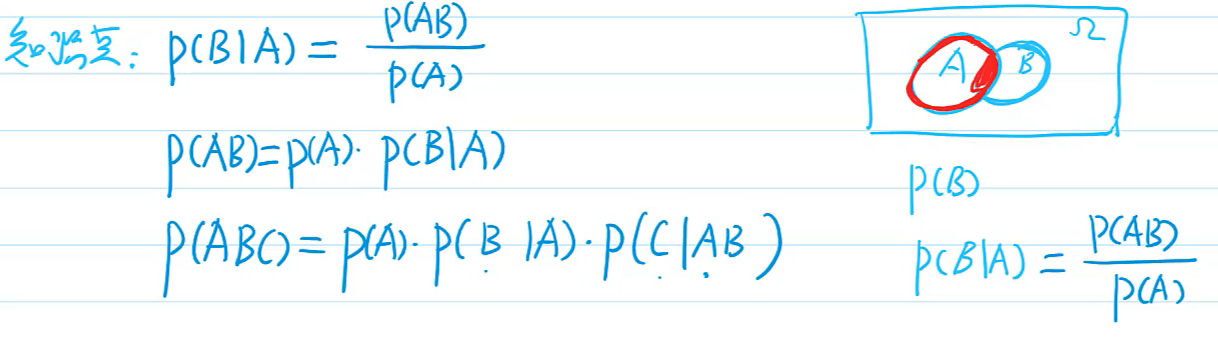 知识点: P(B|A) = P(AB) / P(A)
P(AB)=P(A)· P(B|A)
P(ABC) = P(A)· P(B|A)· P(C|AB)
Ω
A B
P(B)
P(B|A) = P(AB) / P(A)